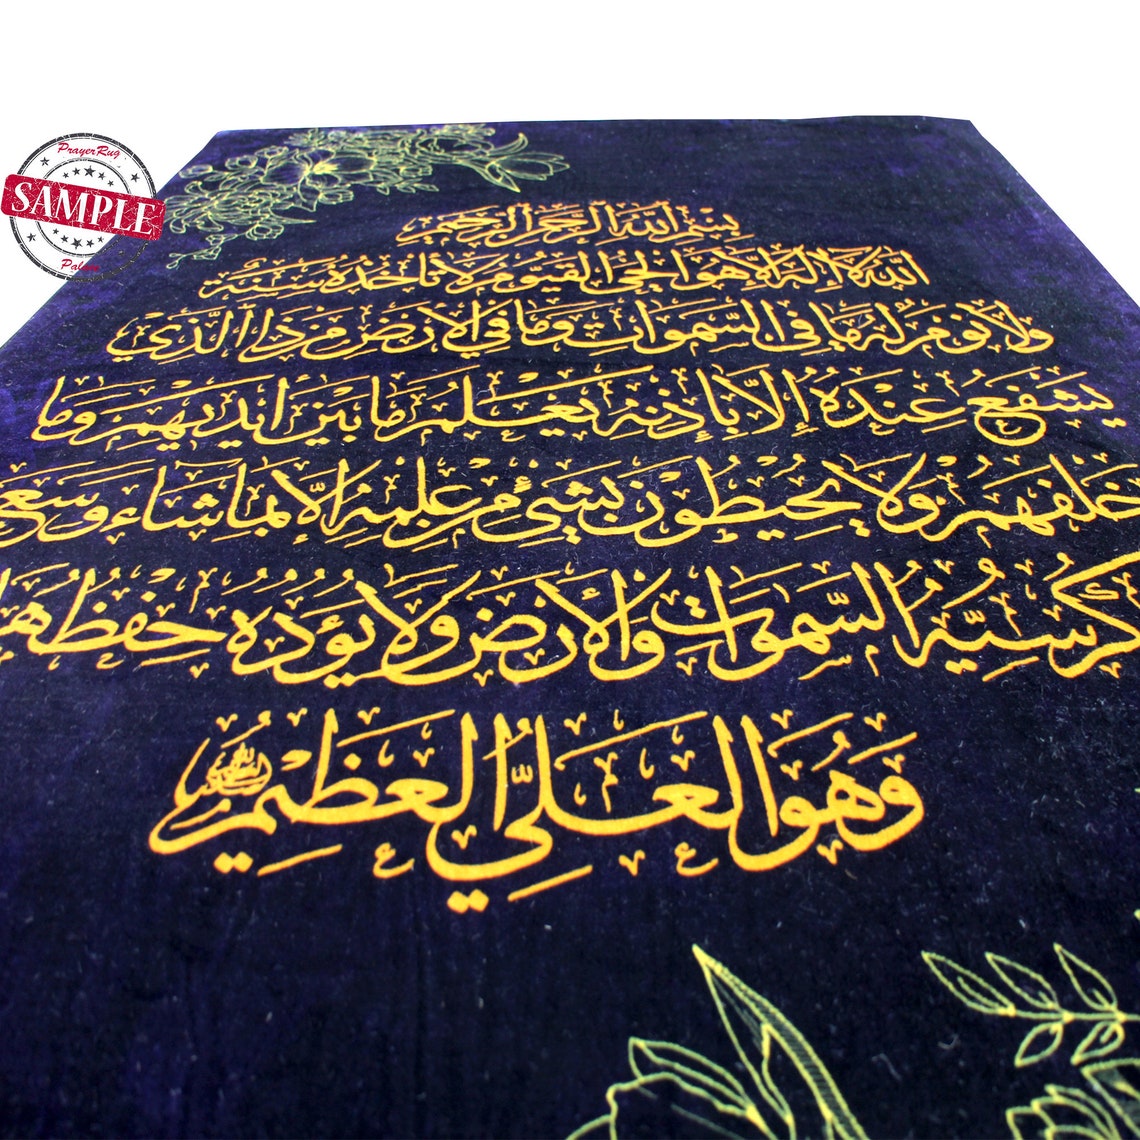 PrayerRug
SAMPLE
بسم الله الرحمن الرحيم
الله لا إله إلا هو الحي القيوم لا تأخذه سنة
ولا نوم له ما في السموات وما في الأرض من ذا الذي
يشفع عنده إلا بإذنه يعلم ما بين أيديهم وما
خلفهم ولا يحيطون بشيء من علمه إلا بما شاء وسع
كرسيه السموات والأرض ولا يؤده حفظهما
وهو العلي العظيم